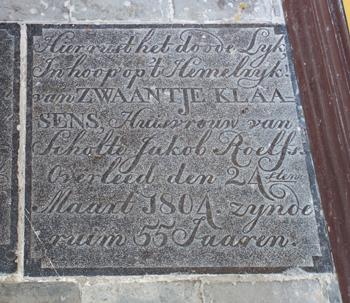 Hier rust het doode Lyk
In hoop op't Hemelryk.
van ZWAANTJE KLAA-
SENS, Huisvrouw van
Scholte Jakob Roelfs.
Overleed den 24sten
Maart 1804. zynde
ruim 55 Jaaren.